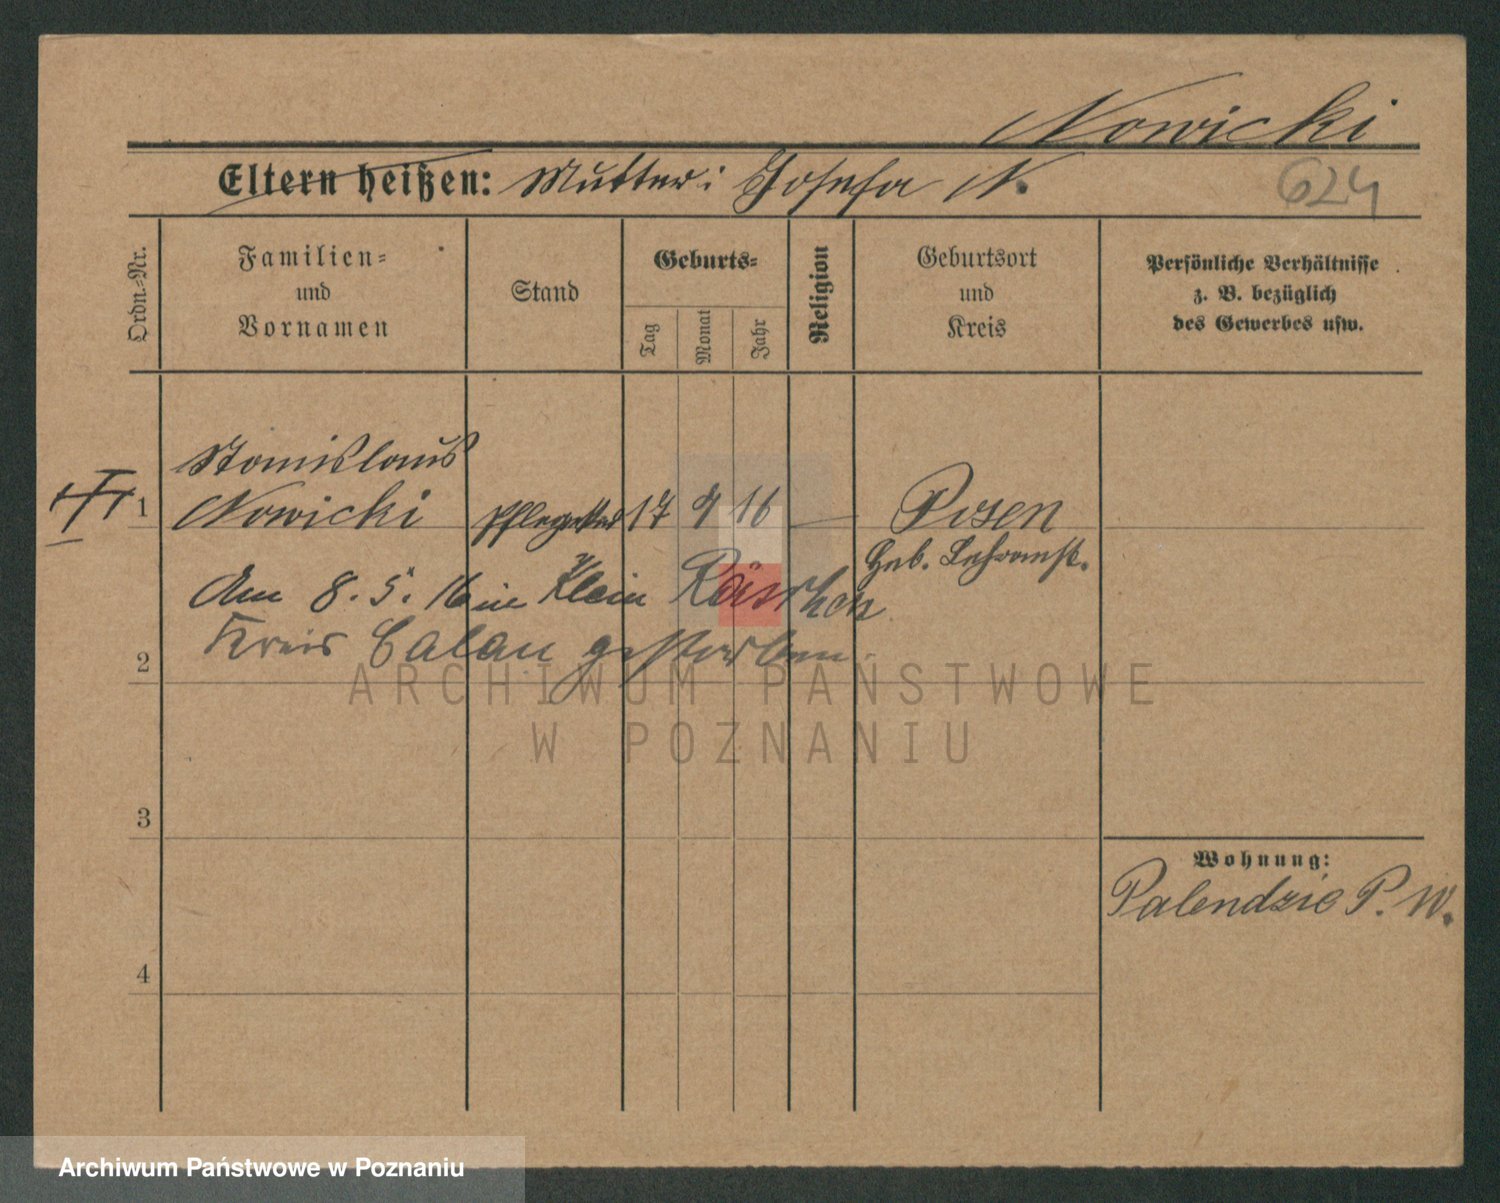 Nowicki
Eltern heißen: Mutter: Josefa N.
624
Ordn.-Nr.
Familien-
und
Vornamen
Stand
Geburts-
Tag
Monat
Jahr
Religion
Geburtsort
und
Kreis
Persönliche Verhältnisse
z. B. bezüglich
des Gewerbes usw.
Stanislaus
1 Nowicki 17 16 — Posen
Geb.
Am 8. 5. 16 in Klein Räschen
Kreis Calau gestorben.
2
3
4
Wohnung:
Palendzie P. W.
ARCHIWUM PAŃSTWOWE
W POZNANIU
Archiwum Państwowe w Poznaniu